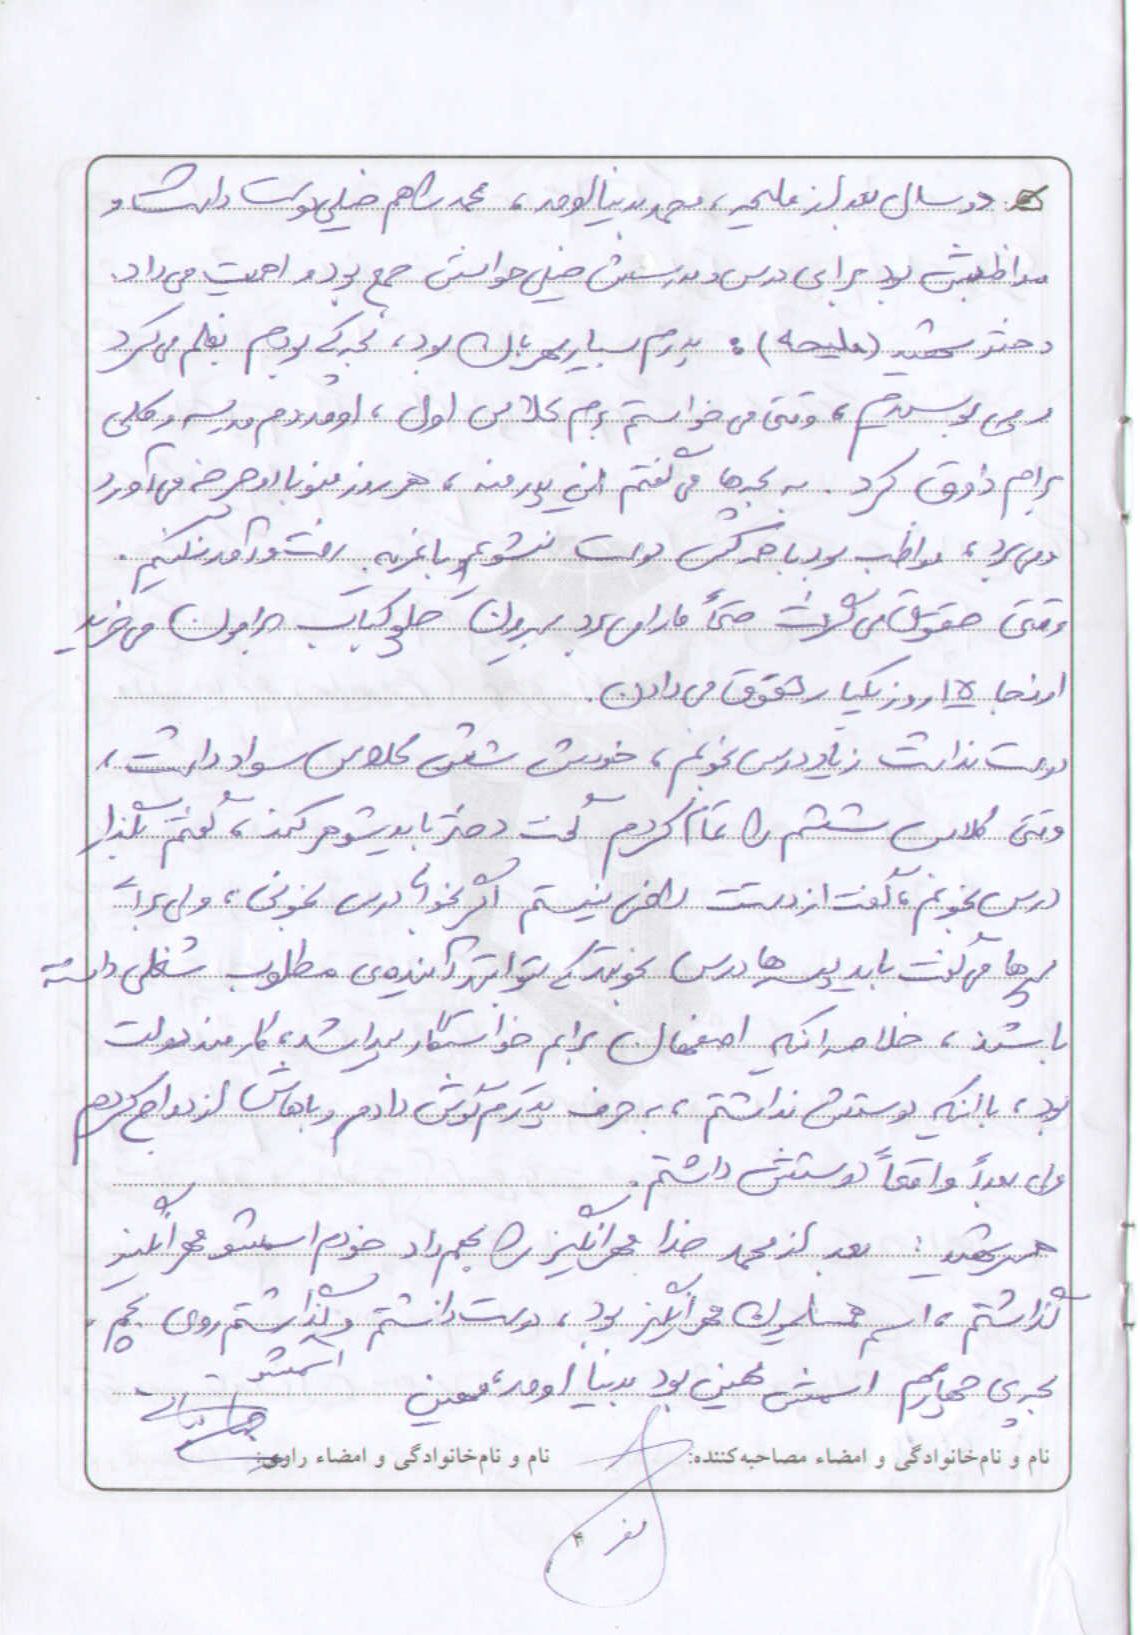 دو سال بعد از ملیحه، محمد بدنیا اومد، محمد را هم خیلی دوست داشت و
مواظبش بود برای درس و مدرسش خیلی حواسش جمع بود و اهمیت می‌داد.
دختر شهید (ملیحه): پدرم بسیار مهربان بود، بچه که بودم بغلم می‌کرد
می بوسیدم، وقتی می‌خواستم برم کلاس اول، اومد دم مدرسه و کلی
برام ذوق کرد. به بچه‌ها می‌گفتم این پدر منه، هر روز منو با دوچرخه می‌آورد
و می‌برد، مواظب بود با هر کسی دوست نشویم و با غریبه رفت و آمد نکنیم.
وقتی حقوق می‌گرفت حتماً ما را می‌برد بیرون چلوکباب برامون می‌خرید
اونجا ۱۵ روز یکبار حقوق می‌دادن.
دوست نداشت زیاد درس بخونم، خودش شش کلاس سواد داشت،
وقتی کلاس ششم را تمام کردم گفت دختر باید شوهر کند، گفتم بگذار
درس بخونم، گفت از دستت راضی نیستم اگر بخوای درس بخونی، ولی برای
پسرها می‌گفت باید پسرها درس بخونند که بتوانند آینده‌ی مطلوب شغلی داشته
باشند، خلاصه اینکه اصفهان برایم خواستگار پیدا شد، کارمند دولت
بود، با اینکه دوستش نداشتم، به حرف پدرم گوش دادم و باهاش ازدواج کردم
ولی بعداً واقعاً دوستش داشتم.
همسر شهید: بعد از محمد خدا مهرانگیز را بهم داد خودم اسمشو مهرانگیز
گذاشتم، اسم همسایمون مهرانگیز بود، دوست داشتم و گذاشتم روی بچم.
بچه‌ی چهارم اسمش مهین بود بدنیا اومد، مهین اسمشو
نام و نام‌خانوادگی و امضاء مصاحبه‌کننده: نام و نام‌خانوادگی و امضاء راوی:
۴